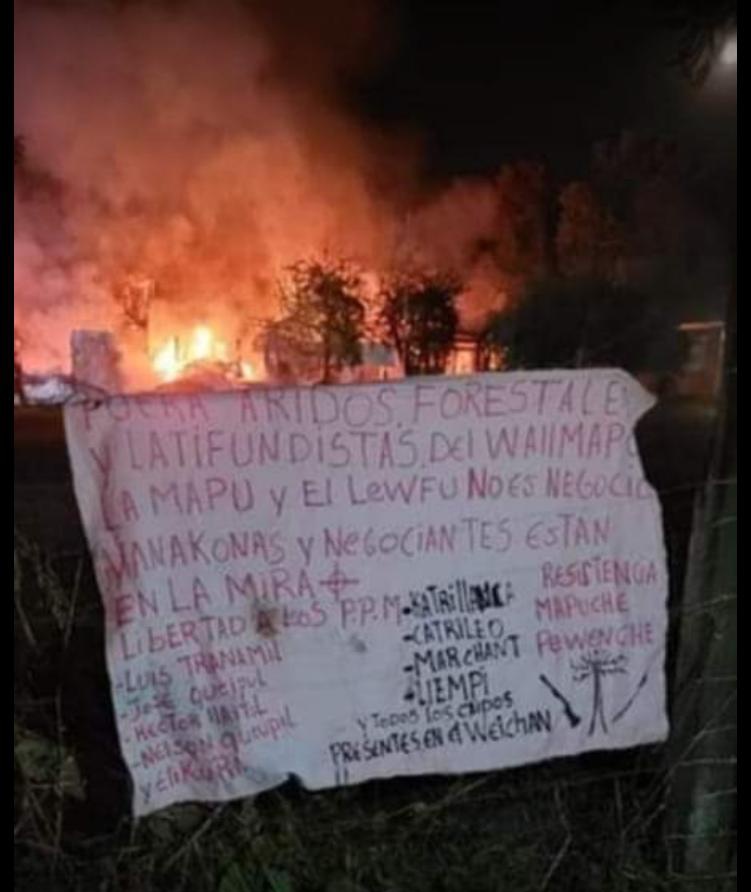 FUERA ARIDOS, FORESTALES
Y LATIFUNDISTAS, DEl WAllMAPU
LA MAPU y El LeWFU NO ES NEGOCIO
YANAKONAS y NeGOCIANTES ESTAN
EN LA MIRA
LIBERTAD A LOS P.P.M
-LUIS TRANAMIL
-JOSE QUEIPUL
-HECTOR
-NELSON QUEUPIL
y
-KATRILLANCA
-CATRILEO
-MARCHANT
-LIEMPI
y TODOS LOS CAIDOS
PRESENTES EN el WeiCHAN
RESISTENCIA
MAPUCHE
PeWENCHE